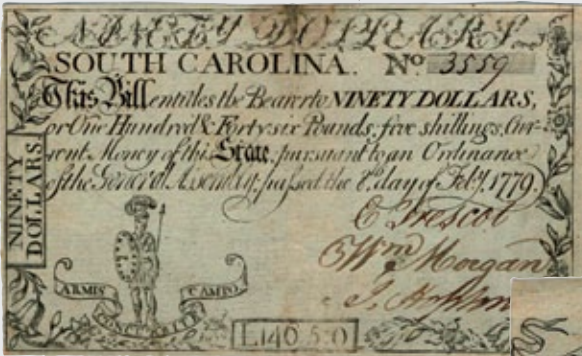 NINETY DOLLARS.
SOUTH CAROLINA. No. 3559
This Bill entitles the Bearer to NINETY DOLLARS,
or One Hundred & Forty six Pounds, five shillings, Cur-
rent Money of this State, pursuant to an Ordinance
of the General Assembly, passed the 8th day of Feby. 1779.
NINETY
DOLLARS
C Trescot
Wm Morgan
ARMIS CAMPO.
L146 5:0